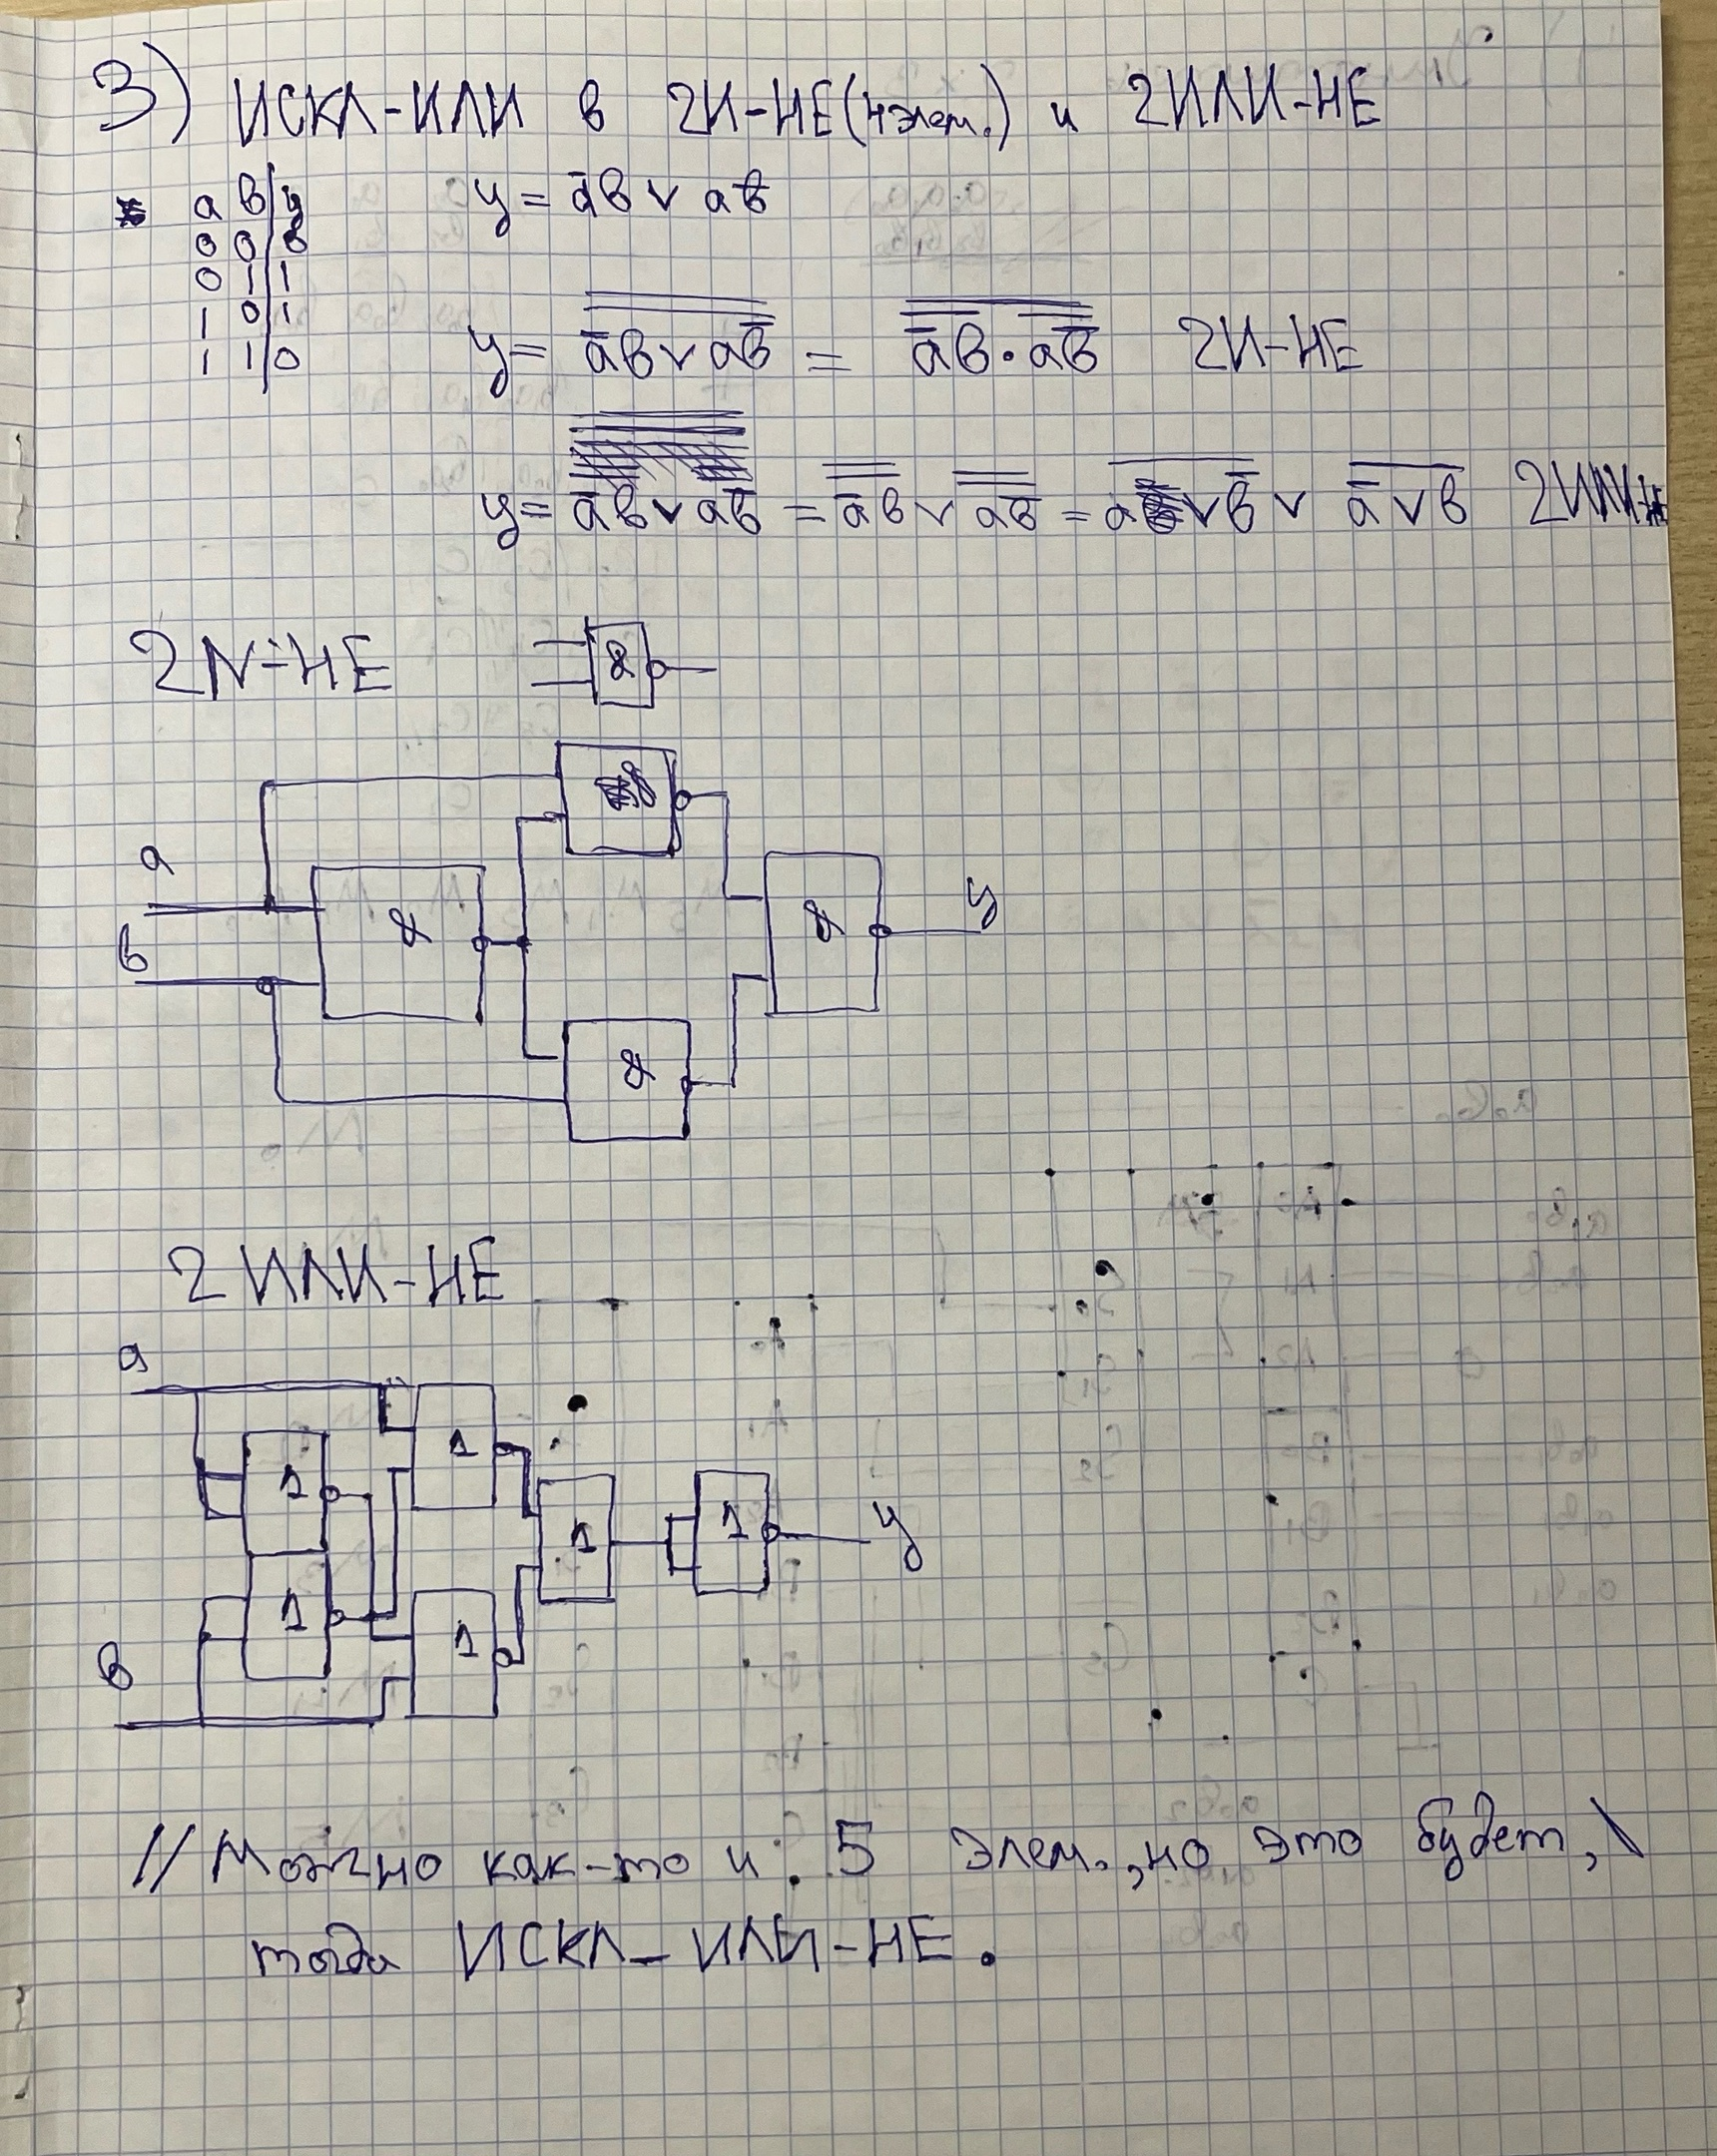 3) ИСКЛ-ИЛИ в 2И-НЕ(4 элем.) и 2ИЛИ-НЕ
a в y
0 0 0
0 1 1
1 0 1
1 1 0
y = a̅в ∨ aв̅
y = a̅в ∨ aв̅ = a̅в · aв̅ 2И-НЕ
y = a̅в ∨ aв̅ = a̅в ∨ aв̅ = a ∨ в̅ ∨ a̅ ∨ в 2ИЛИ-НЕ
2И-НЕ &
&
a
в & & y
&
2 ИЛИ-НЕ
a
1 1
1 1 y
1 1
в
// Можно как-то и 5 элем., но это будет,
тогда ИСКЛ-ИЛИ-НЕ.